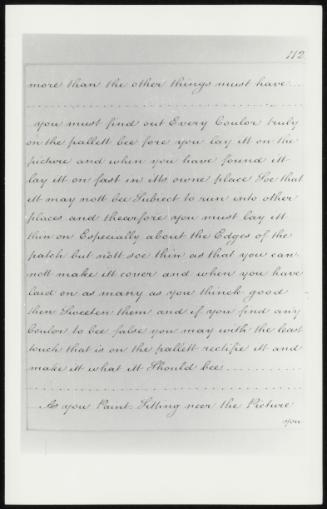 112
more than the other things must have ...
you must find out Every Coulor truly
on the pallett bee fore you lay itt on the
picture and when you have found itt
lay itt on fast in itts owne place Soe that
itt may nott bee Subject to run into other
places and thearfore you must lay itt
thin on Especially about the Edges of the
patch but nott soe thin as that you can
nott make itt cover and when you have
laid on as many as you thinck good
then Sweeten them and if you find any
Coulor to bee false you may with the least
touch that is on the pallett rectifie itt and
make itt what itt Should bee
As you Paint Sitting neer the Picture
you